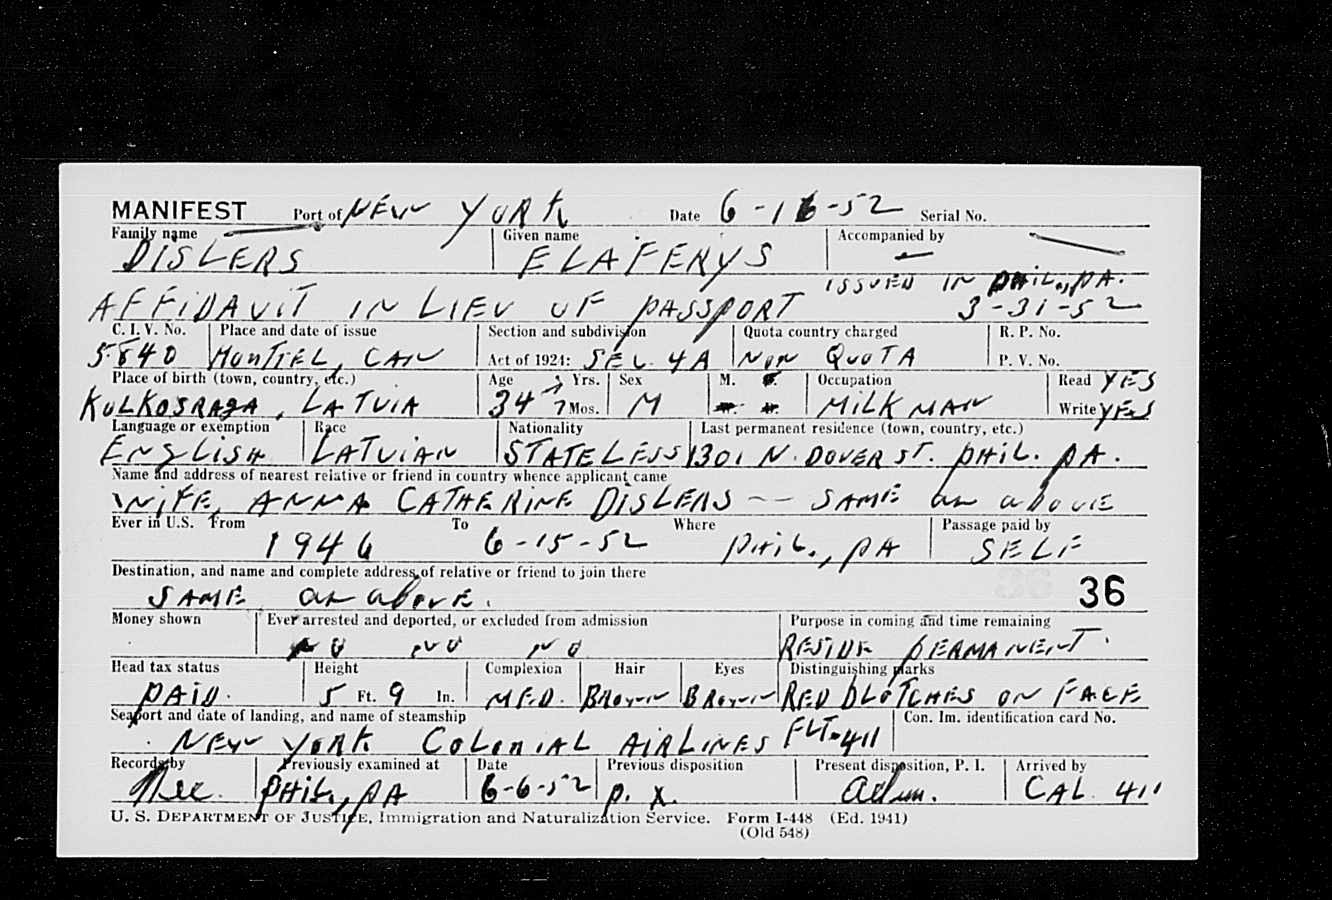 MANIFEST Port of NEW YORK Date 6-16-52 Serial No.
Family name Given name Accompanied by
DISLERS ELAFERYS
ISSUED IN PHIL., PA.
AFFIDAVIT IN LIEU OF PASSPORT 3-31-52
C. I. V. No. Place and date of issue Section and subdivision Quota country charged R. P. No.
5840 MONTREL, CAN Act of 1924: SEC. 4A NON QUOTA P. V. No.
Place of birth (town, country, etc.) Age Yrs. Sex M. Occupation Read YES
, LATVIA 34 7 Mos. M MILKMAN Write YES
Language or exemption Race Nationality Last permanent residence (town, country, etc.)
ENGLISH LATVIAN STATELESS 1301 N. DOVER ST. PHIL. PA.
Name and address of nearest relative or friend in country whence applicant came
WIFE, ANNA CATHERINE DISLERS -- SAME as above
Ever in U.S. From To Where Passage paid by
1946 6-15-52 PHIL., PA SELF
Destination, and name and complete address of relative or friend to join there
SAME as above. 36
Money shown Ever arrested and deported, or excluded from admission Purpose in coming and time remaining
NO NO NO RESIDE PERMANENT.
Head tax status Height Complexion Hair Eyes Distinguishing marks
PAID. 5 Ft. 9 In. MED. BROWN BROWN RED BLOTCHES ON FACE
Seaport and date of landing, and name of steamship Con. Im. identification card No.
NEW YORK COLONIAL AIRLINES FLT-411
Records by Previously examined at Date Previous disposition Present disposition, P. I. Arrived by
PHIL., PA 6-6-52 P. X. Adm. CAL 411
U. S. DEPARTMENT OF JUSTICE, Immigration and Naturalization Service. Form I-448 (Ed. 1941)
(Old 548)